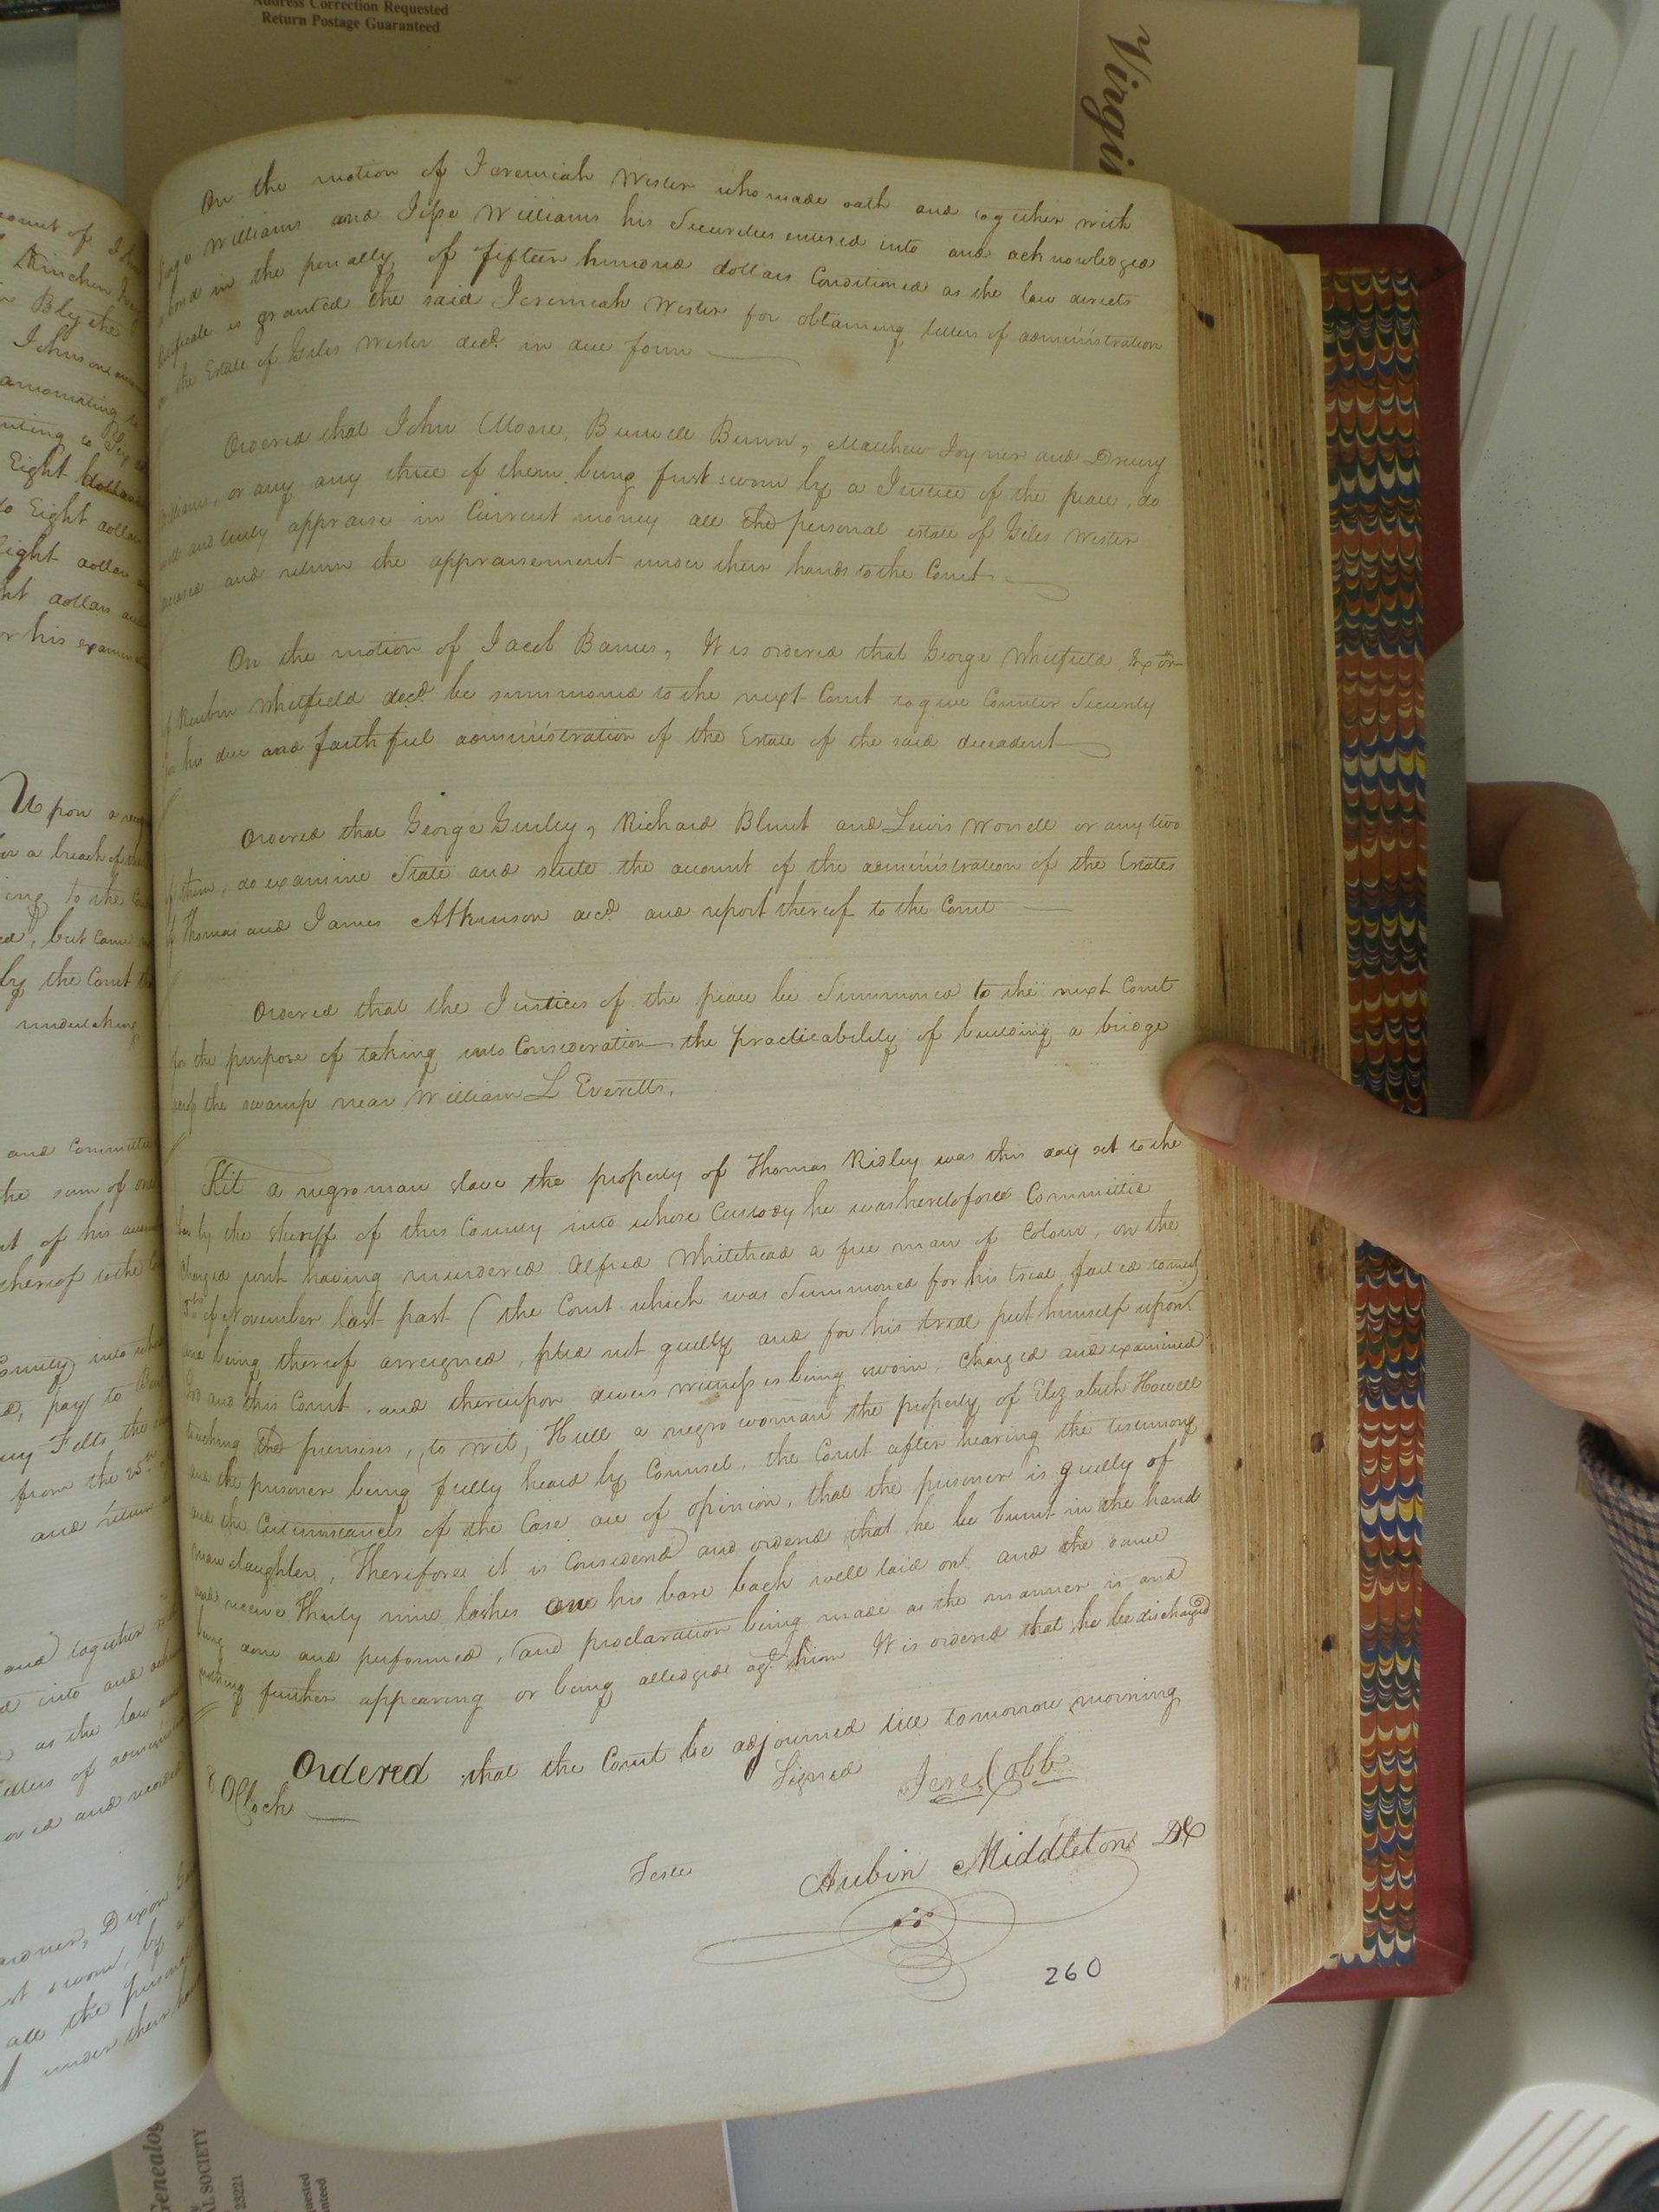 Address Correction Requested
Return Postage Guaranteed
Virgin
On the motion of Jeremiah Wester who made oath and together with
Williams and Jesse Williams his Securities entered into and acknowledged
bond in the penalty of fifteen hundred dollars Conditioned as the law directs
Certificate is granted the said Jeremiah Wester for obtaining letters of administration
on the Estate of Giles Wester decd. in due form
Ordered that John Moore, Burwell Bunn, Matthew Joyner and Drewry
Williams, or any any three of them being first sworn by a Justice of the peace, do
well and truly appraise in Current money all the personal estate of Giles Wester
deceased and return the appraisement under their hands to the Court
On the motion of Jacob Barnes, It is ordered that George Whitfield Exor
of Reubin Whitfield decd be summoned to the next Court to give Counter Security
for his due and faithful administration of the Estate of the said decedent
Ordered that George Gurley, Richard Blunt and Lewis Worrell or any two
of them, do examine State and settle the account of the administration of the Estates
of Thomas and James Atkinson decd. and report thereof to the Court
Ordered that the Justices of the peace be Summoned to the next Court
for the purpose of taking into Consideration the practicability of building a bridge
across the swamp near William L Everetts.
Kit a negro man slave the property of Thomas Ridley was this day set to the
bar by the sheriff of this County into whose Custody he was heretofore Committed
Charged with having murdered Alfred Whitehead a free man of Colour, on the
of November last past (the Court which was Summoned for his trial failed to meet)
and being thereof arreigned, plead not guilty and for his trial put himself upon
God and this Court, and thereupon divers witnesses being sworn, Charged and examined
touching the premises, to wit, Hull a negro woman the property of Elizabeth Howell
and the prisoner being fully heard by Counsel, the Court after hearing the testimony
and the Circumstances of the Case are of opinion, that the prisoner is guilty of
manslaughter, Therefore it is Considered and ordered that he be burnt in the hand
and receive Thirty nine lashes on his bare back well laid on and the same
being done and performed, and proclaration being made as the manner is and
nothing further appearing or being alledged agt. him It is ordered that he be discharged
Ordered that the Court be adjourned till tomorrow morning
OClock
Signed Jere Cobb
Teste
Aubin Middleton DC
260
Upon a
for a breach of the
ing to the
but Came
by the Court
undertaking
and Committed
the sum of one
of his
thereof to the
County into
pay to
Felts the
from the 25th
and return
and together
into and
as the law
letters of
and recorded
Dixon
sworn, by
all the personal
under their
ount of
Kinchen
Blythe
Johnson
amounting
Eight dollars
to Eight dollars
Eight dollars
dollars and
for his
Genealog
AL SOCIETY
23221